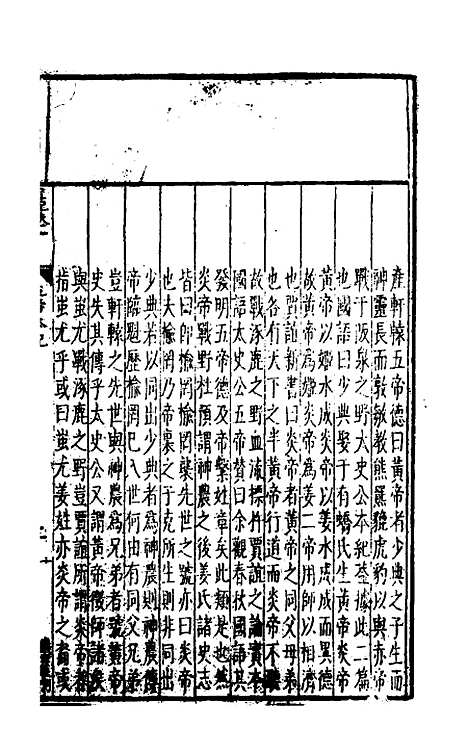 產軒轅五帝德曰黃帝者少典之子生而
神靈長而敦敏教熊羆貔虎豹以與赤帝
戰于阪泉之野太史公本紀葢據此二篇
也國語曰少典娶于有蟜氏生黃帝炎帝
黃帝以姬水成炎帝以姜水成成而異德
故黃帝為姬炎帝為姜二帝用師以相濟
也賈誼新書曰炎帝者黃帝之同父母弟
也各有天下之半黃帝行道而炎帝不聽
故戰涿鹿之野血流漂杵賈誼之論實本
國語太史公五帝贊曰余觀春秋國語其
發明五帝德及帝繫姓章矣此類是也然
炎帝戰野杜預謂神農之後姜氏諸史志
皆曰即榆罔榆罔襲先世之號亦曰炎帝
也夫榆罔乃帝裏之于克所生則非同出
少典若以同出少典者為神農則神農傳
帝臨魁歷榆罔已八世何由有同父兄弟
豈軒轅之先世與神農為兄弟者號黃帝
史失其傳乎太史公又謂黃帝徵師諸矦
與蚩尤戰涿鹿之野豈賈誼所謂炎帝者
指蚩尤乎或曰蚩尤姜姓亦炎帝之裔或